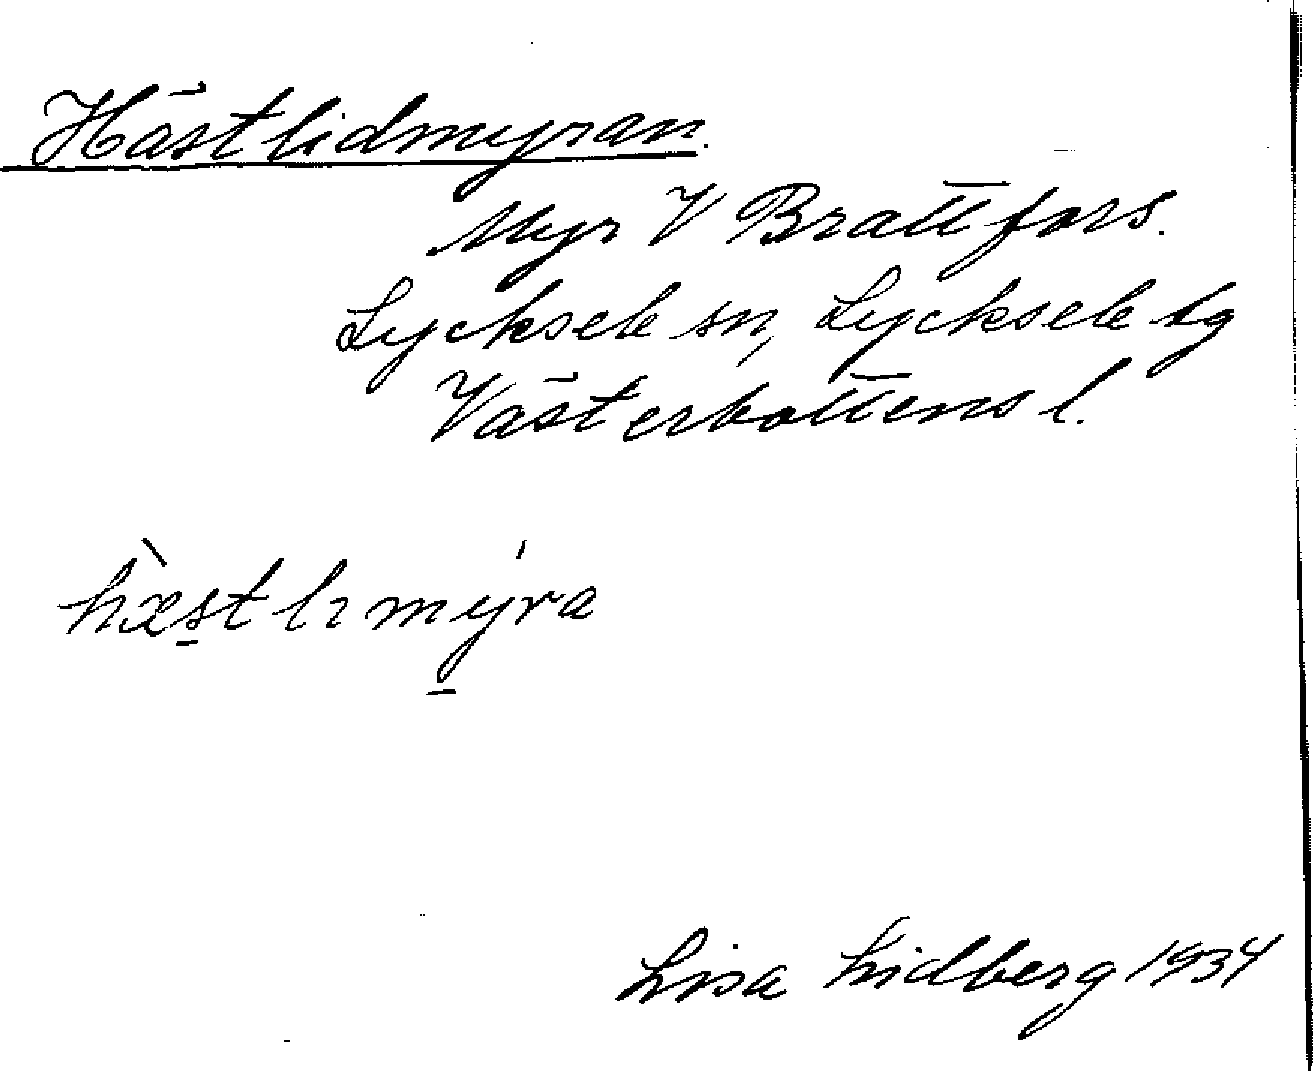 Hästlidmyran.
Myr V Brattfors.
Lycksele sn, Lycksele lg
Västerbottens l.
hæ̀st lı mýra
Lisa Lidberg 1934